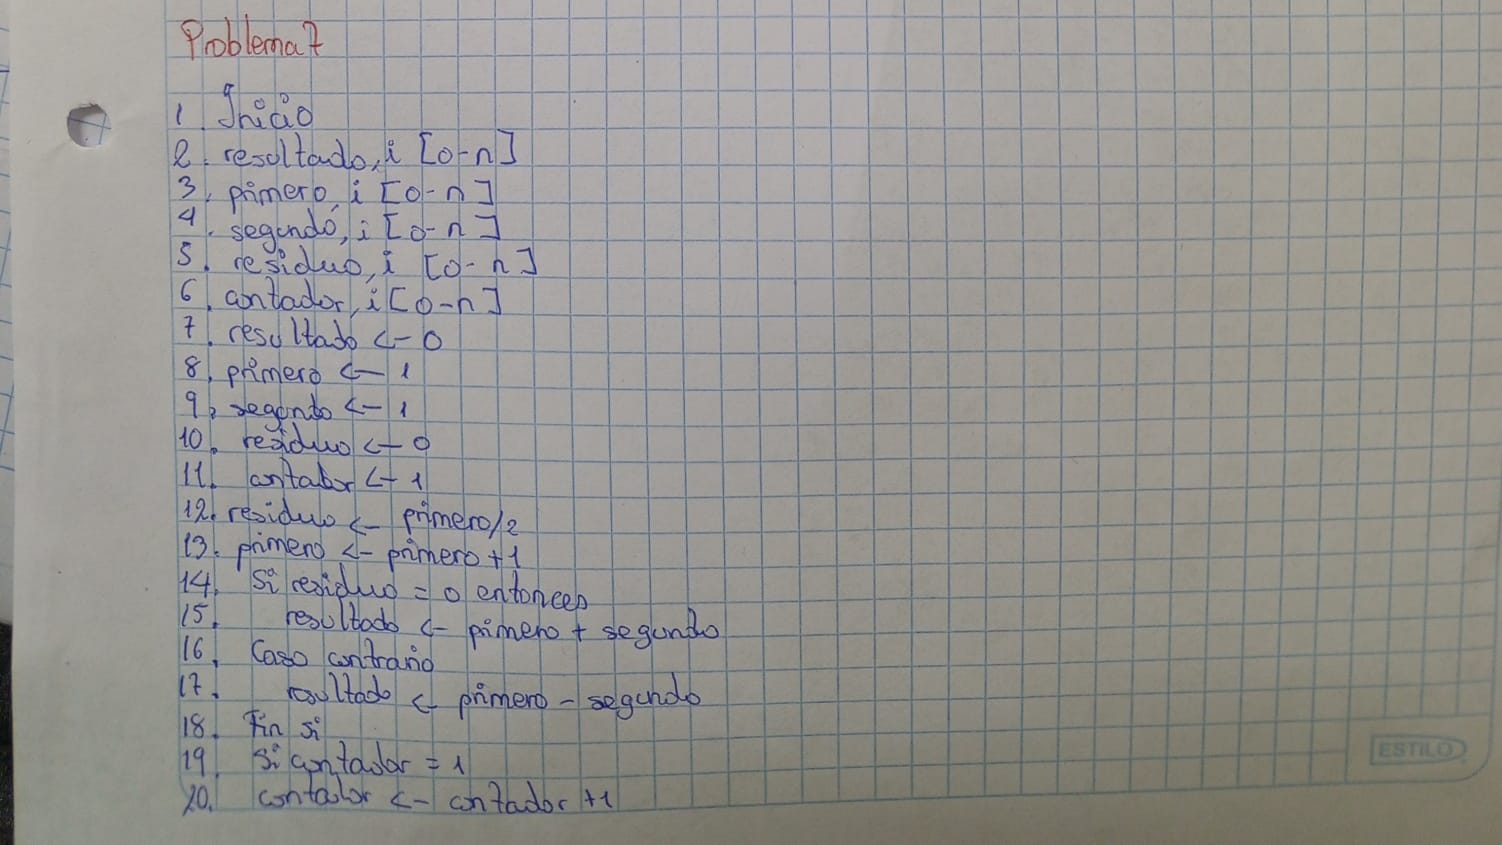 Problema 7
1. Inicio
2. resultado, i [0-n]
3. primero, i [0-n]
4. segundo, i [0-n]
5. residuo, i [0-n]
6. contador, i [0-n]
7. resultado <- 0
8. primero <- 1
9. segundo <- 1
10. residuo <- 0
11. contador <- 1
12. residuo <- primero/2
13. primero <- primero +1
14. Si residuo = 0 entonces
15. resultado <- primero + segundo
16. Caso contrario
17. resultado <- primero - segundo
18. Fin si
19. Si contador = 1
20. contador <- contador +1
ESTILO